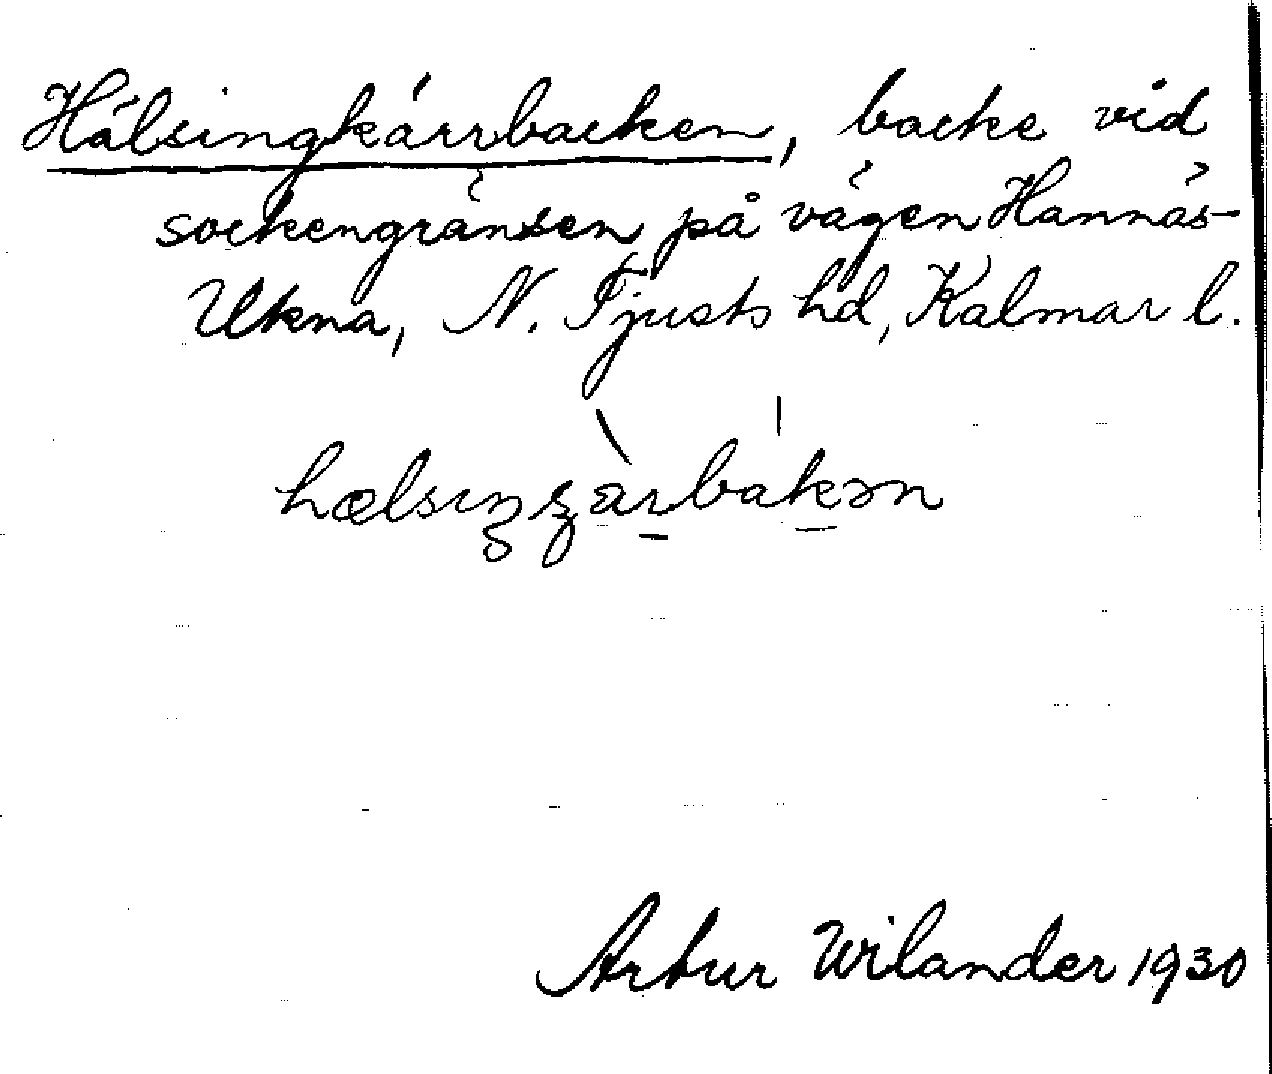 Hälsingkärrbacken, backe vid
sockengränsen på vägen Hannäs-
Ukna, N. Tjusts hd, Kalmar l.
Artur Wilander 1930